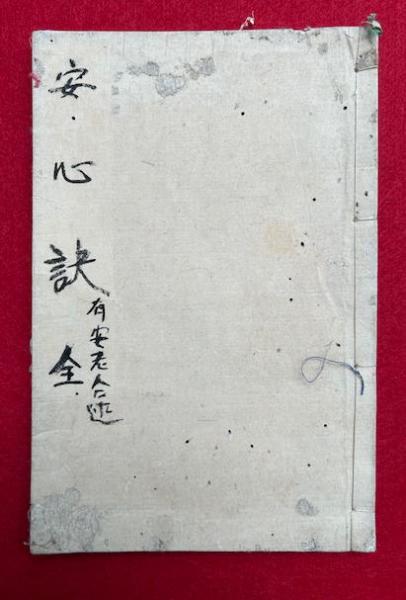 安心訣全
有安老人述